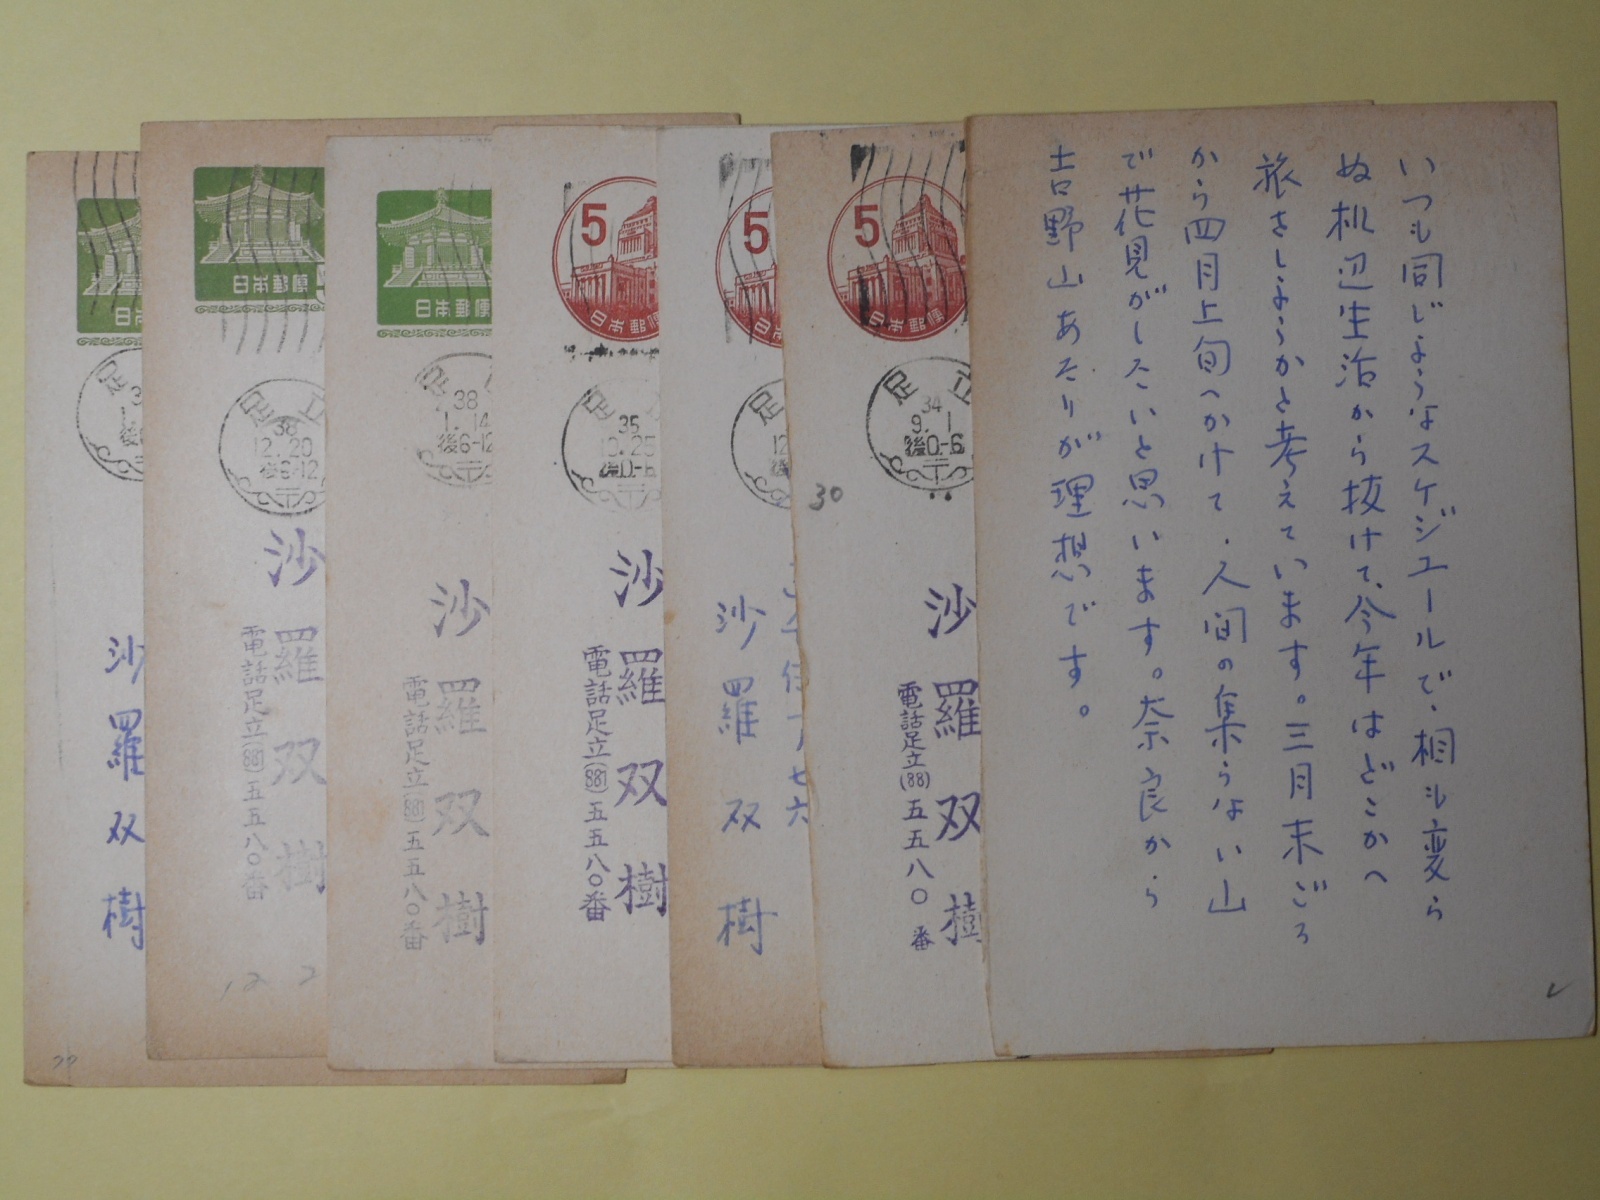 いつも同じようなスケジュールで、相も変ら
ぬ机辺生活から抜けて、今年はどこかへ
旅をしようかと考えています。三月末ごろ
から四月上旬へかけて、人間の集らない山
で花見がしたいと思います。奈良から
吉野山あたりが理想です。
5
日本郵便
足立
34
9.1
後0-6
30
沙羅双樹
電話足立(88)五五八〇番
5
日本郵
足
12
沙羅双樹
5
日本郵便
足
35
12.25
後0-6
沙羅双樹
電話足立(881)五五八〇番
日本郵便
足
38
1.14
後6-12
沙羅双樹
電話足立(881)五五八〇番
日本郵便
足立
38
12.20
後6-12
沙羅双樹
電話足立(881)五五八〇番
日本
足
沙羅双樹